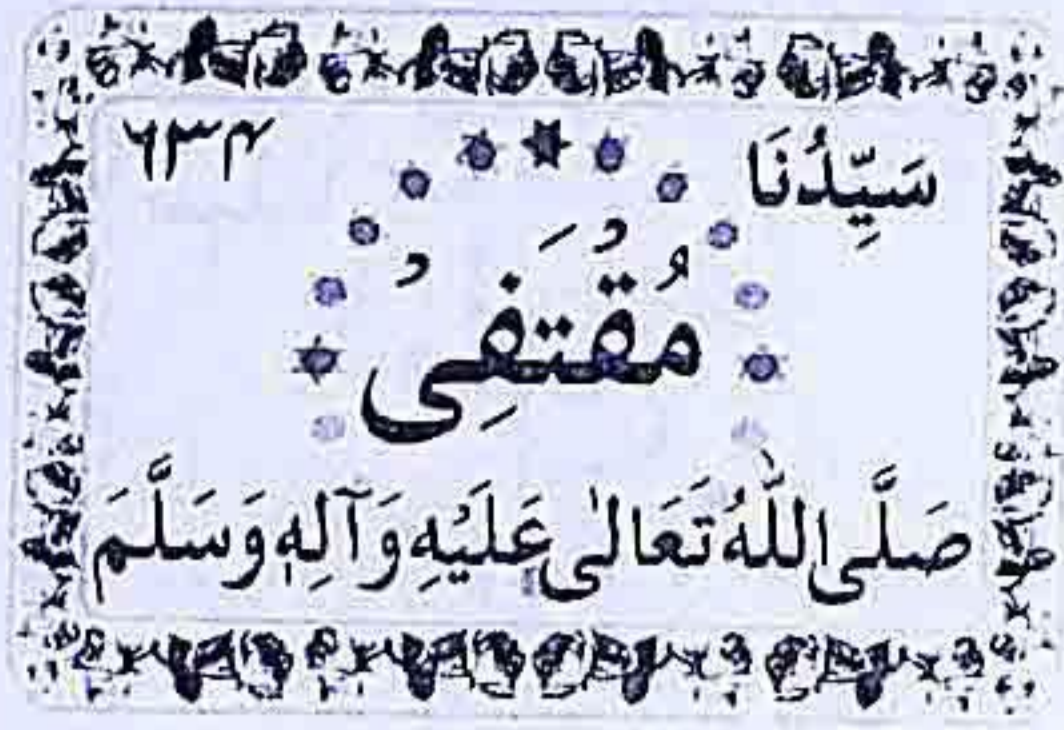 سَيِّدُنَا ۶۳۴
مُقْتَفِىْ
صَلَّى اللّٰهُ تَعَالٰى عَلَيْهِ وَآلِهٖ وَسَلَّمَ